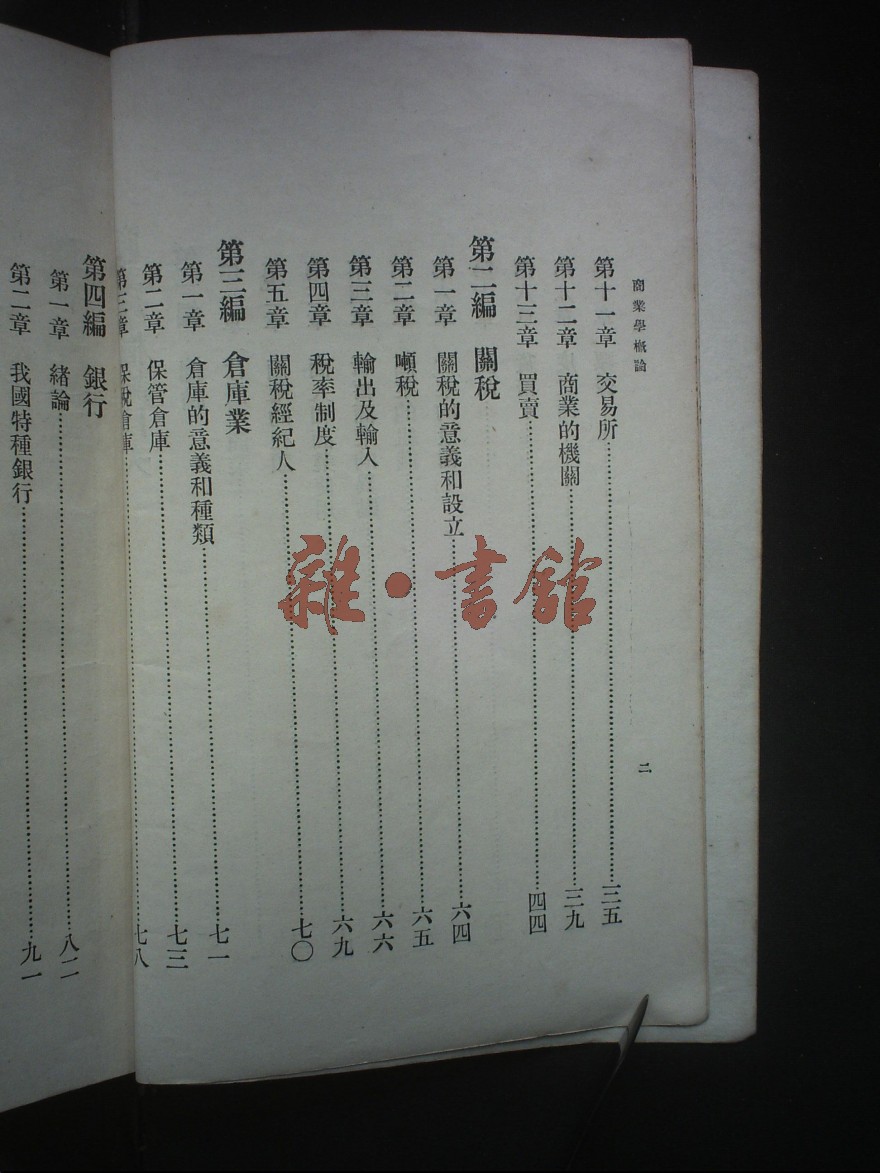 商業學概論
二
第十一章 交易所……三五
第十二章 商業的機關……三九
第十三章 買賣……四四
第二編 關稅
第一章 關稅的意義和設立……六四
第二章 噸稅……六五
第三章 輸出及輸入……六六
第四章 稅率制度……六九
第五章 關稅經紀人……七〇
第三編 倉庫業
第一章 倉庫的意義和種類……七一
第二章 保管倉庫……七三
第三章 保稅倉庫……七八
第四編 銀行
第一章 緒論……八二
第二章 我國特種銀行……九一
雜·書館